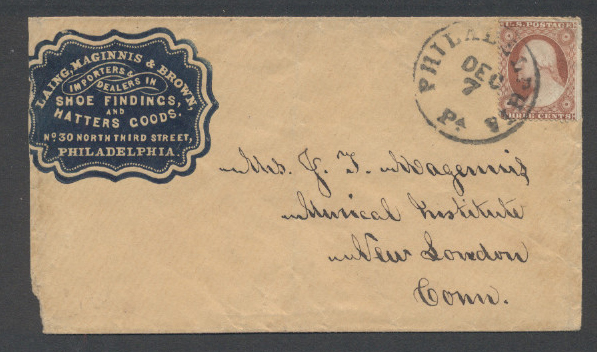 LAING, MAGINNIS & BROWN,
IMPORTERS &
DEALERS IN
SHOE FINDINGS,
AND
HATTERS GOODS.
No 30 NORTH THIRD STREET,
PHILADELPHIA.
PHILADELPHIA
DEC
7
Pa
U.S. POSTAGE
THREE CENTS
J. T. Maginnis
Musical Institute
New London
Conn.